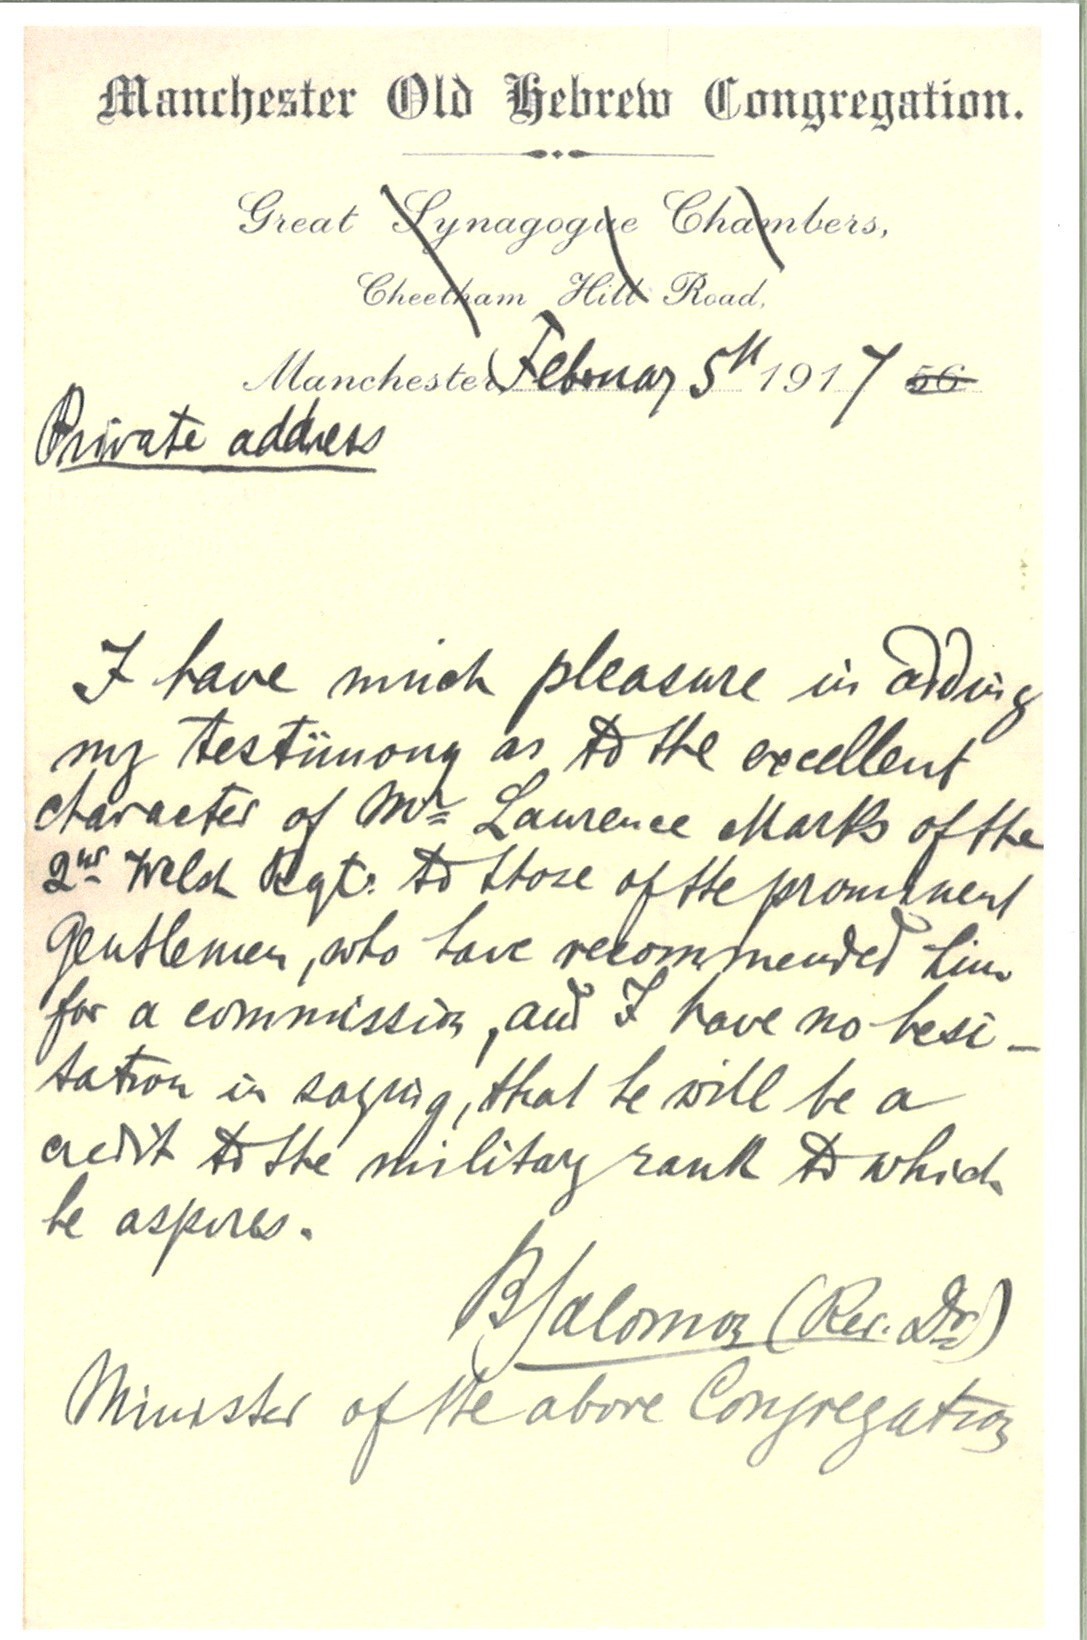 Manchester Old Hebrew Congregation.
Great Synagogue Chambers,
Cheetham Hill Road,
Manchester, February 5th 1917 56
Private address
I have much pleasure in adding
my testimony as to the excellent
character of Mr Laurence Marks of the
2nd Welsh Regt. to those of the prominent
Gentlemen, who have recommended him
for a commission, and I have no hesi-
tation in saying, that he will be a
credit to the military rank to which
he aspires.
B Salomon (Rev. Dr)
Minister of the above Congregation